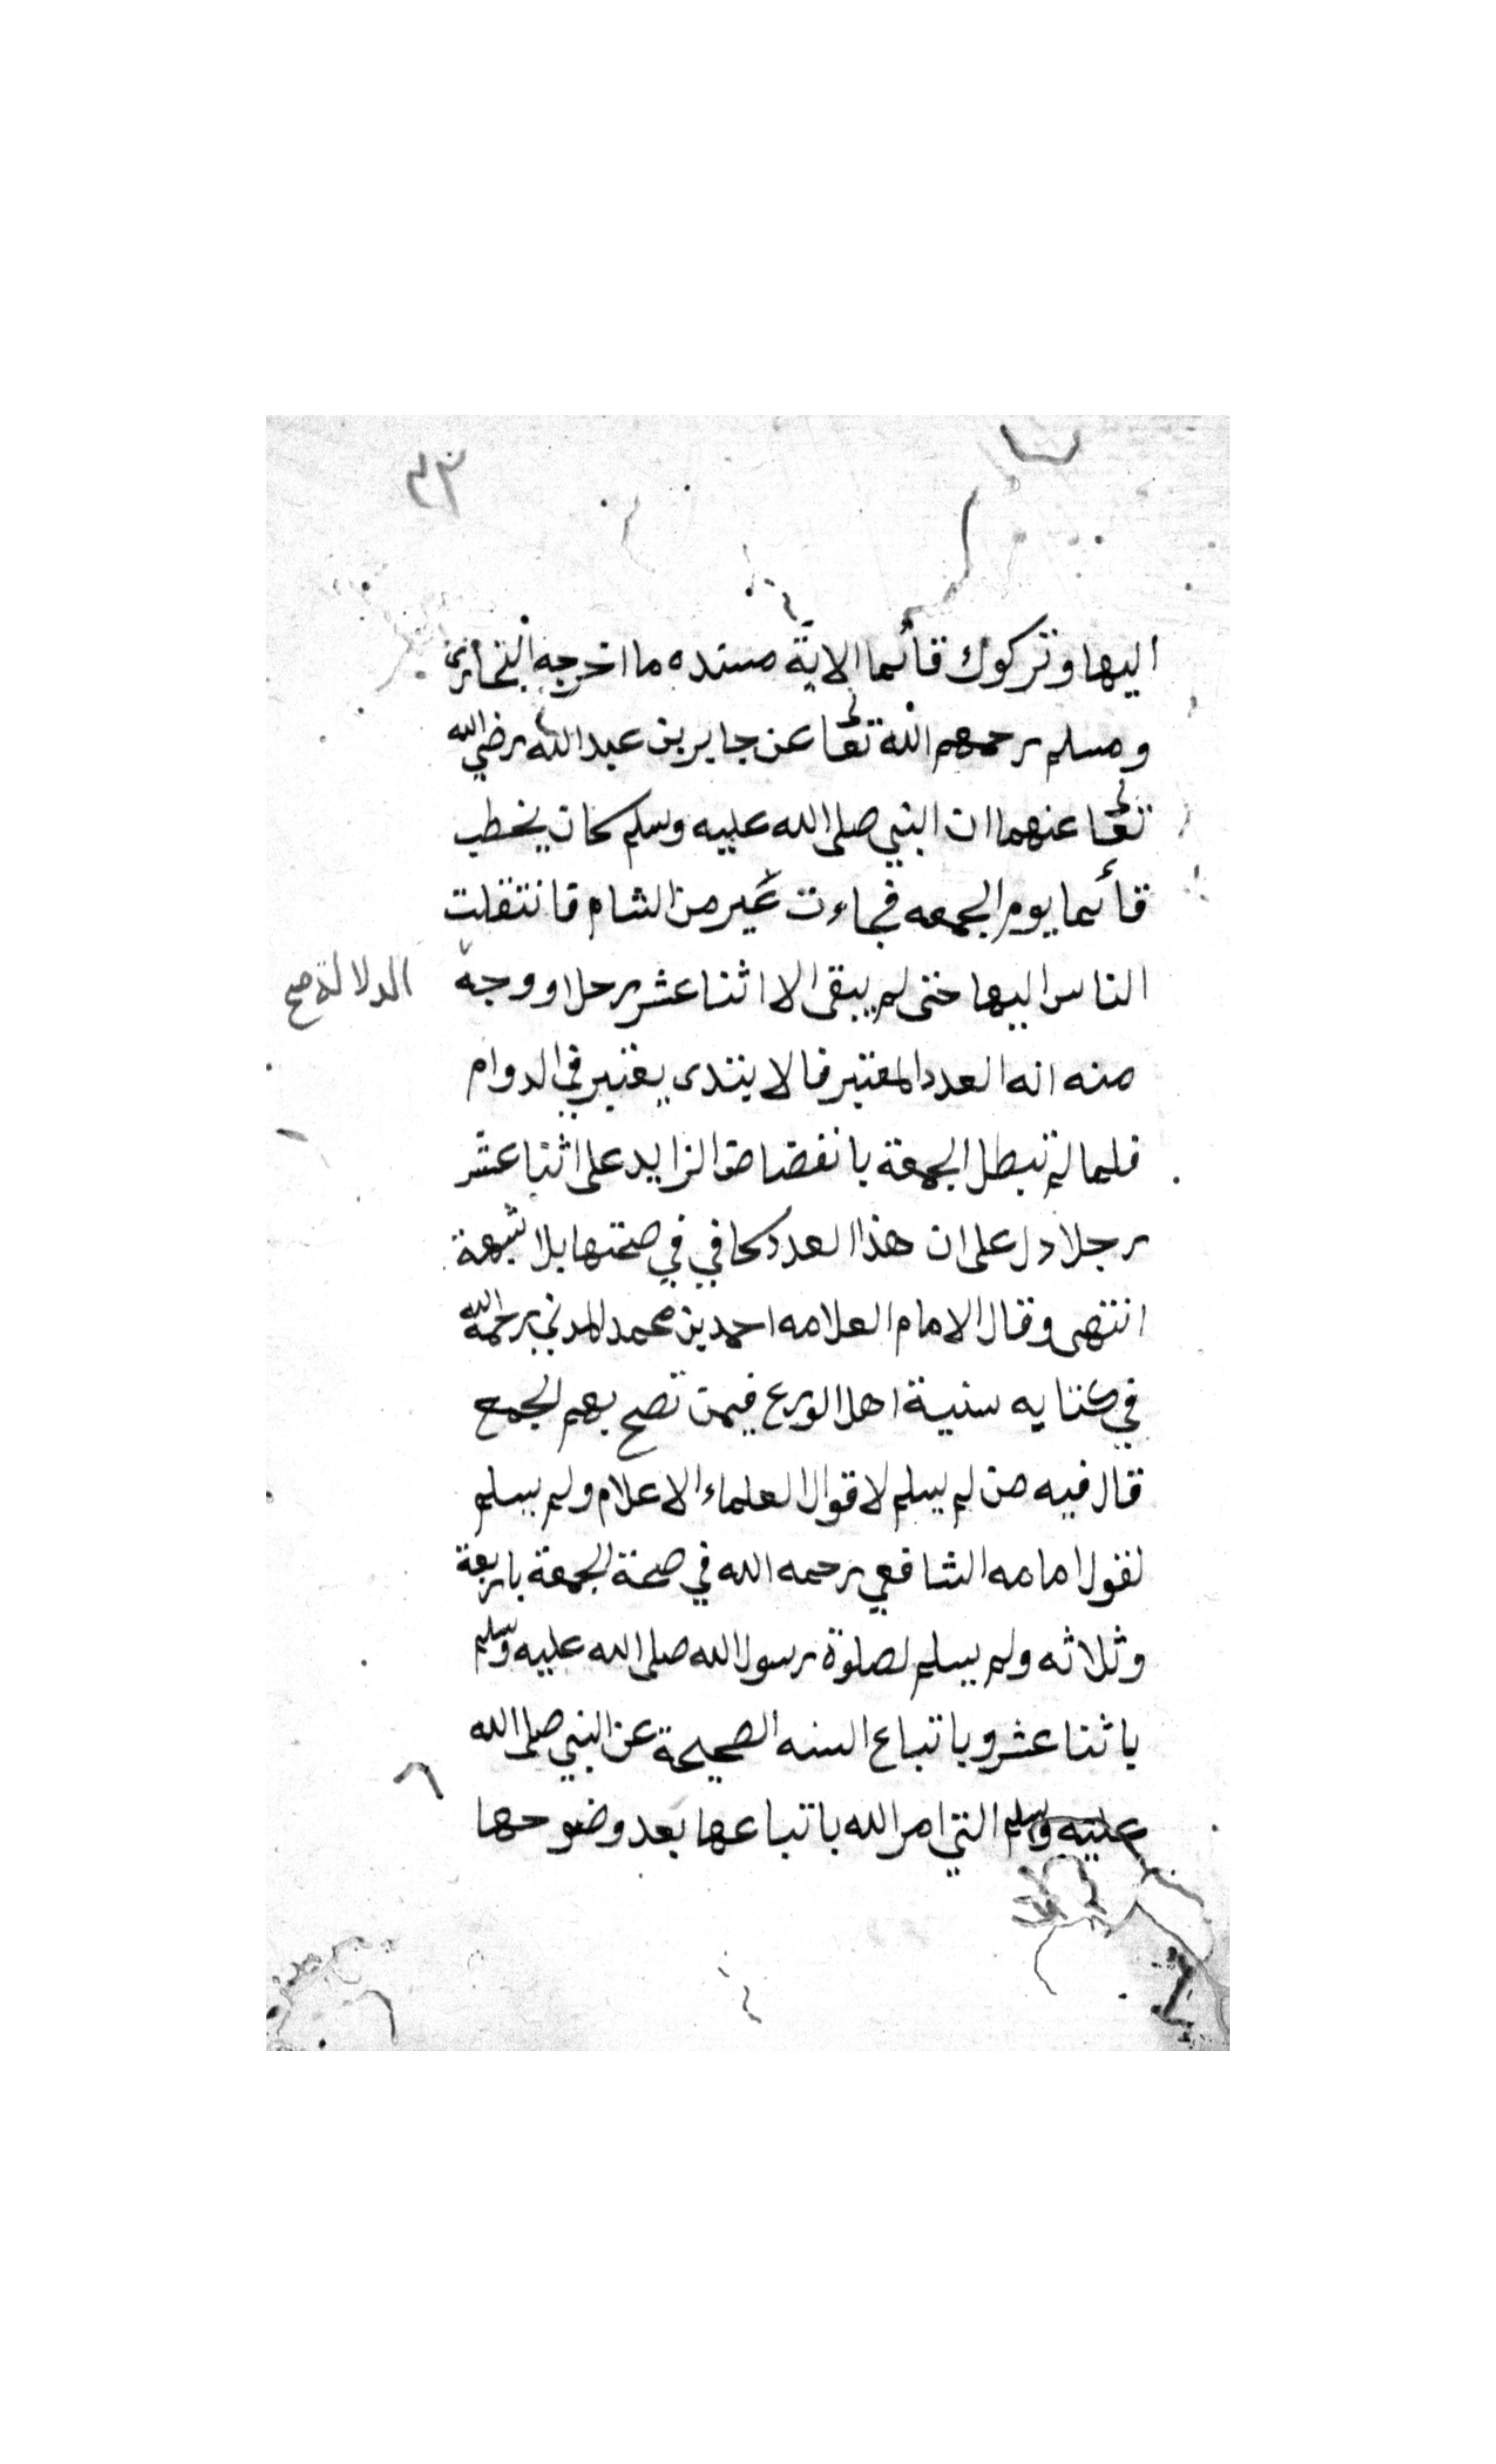 ٢٣
اليها وتركوك قائما الاية مسنده ما اخرجه البخاري
ومسلم رحمهم الله تعالى عن جابر بن عبد الله رضي الله
تعالى عنهما ان النبي صلى الله عليه وسلم كان يخطب
قائما يوم الجمعه فجاءت عير من الشام فانتقلت
الناس اليها حتى لم يبقى الا اثنا عشر رجلا ووجه
الدلالة صح
منه انه العدد المعتبر فالابتدى يعتبر في الدوام
فلما لم تبطل الجمعة بانفضاض الزايد على اثنا عشر
رجلا دل على ان هذا العدد كافي في صحتها بلا شبهة
انتهى وقال الامام العلامه احمد بن محمد المدني رحمه الله
في كتابه سنية اهل الورع فيمن تصح بهم الجمع
قال فيه من لم يسلم لاقوال العلماء الاعلام ولم يسلم
لقول امامه الشافعي رحمه الله في صحة الجمعة باربعة
وثلاثه ولم يسلم لصلوة رسول الله صلى الله عليه وسلم
باثنا عشر وباتباع السنه الصحيحة عن النبي صلى الله
عليه وسلم التي امر الله باتباعها بعد وضوحها